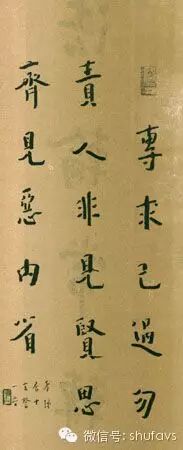 專求己過勿
責人非見賢思
齊見惡內省
微信号: shufavs